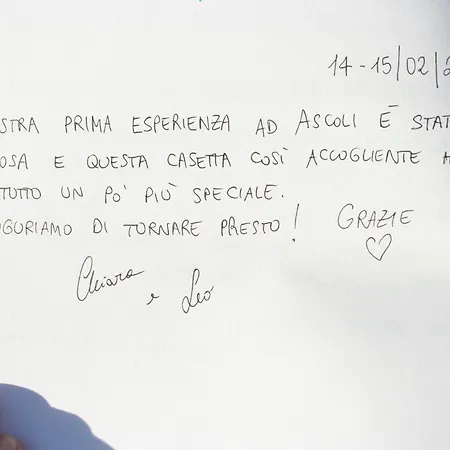 14-15/02/2
STRA PRIMA ESPERIENZA AD ASCOLI È STAT
OSA E QUESTA CASETTA COSÌ ACCOGLIENTE H
TUTTO UN PO' PIÙ SPECIALE.
GURIAMO DI TORNARE PRESTO! GRAZIE
Chiara e Leo